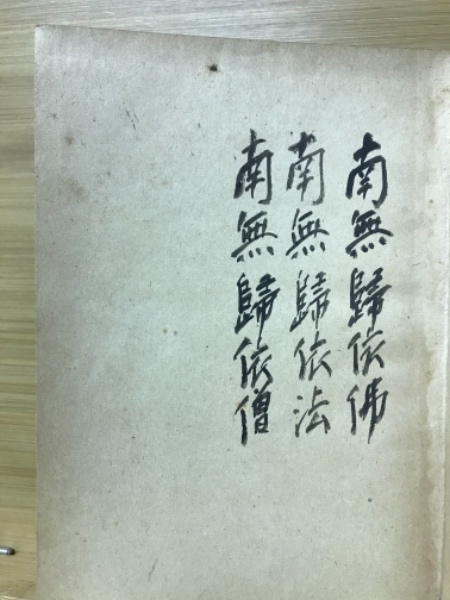 南無歸依佛
南無歸依法
南無歸依僧